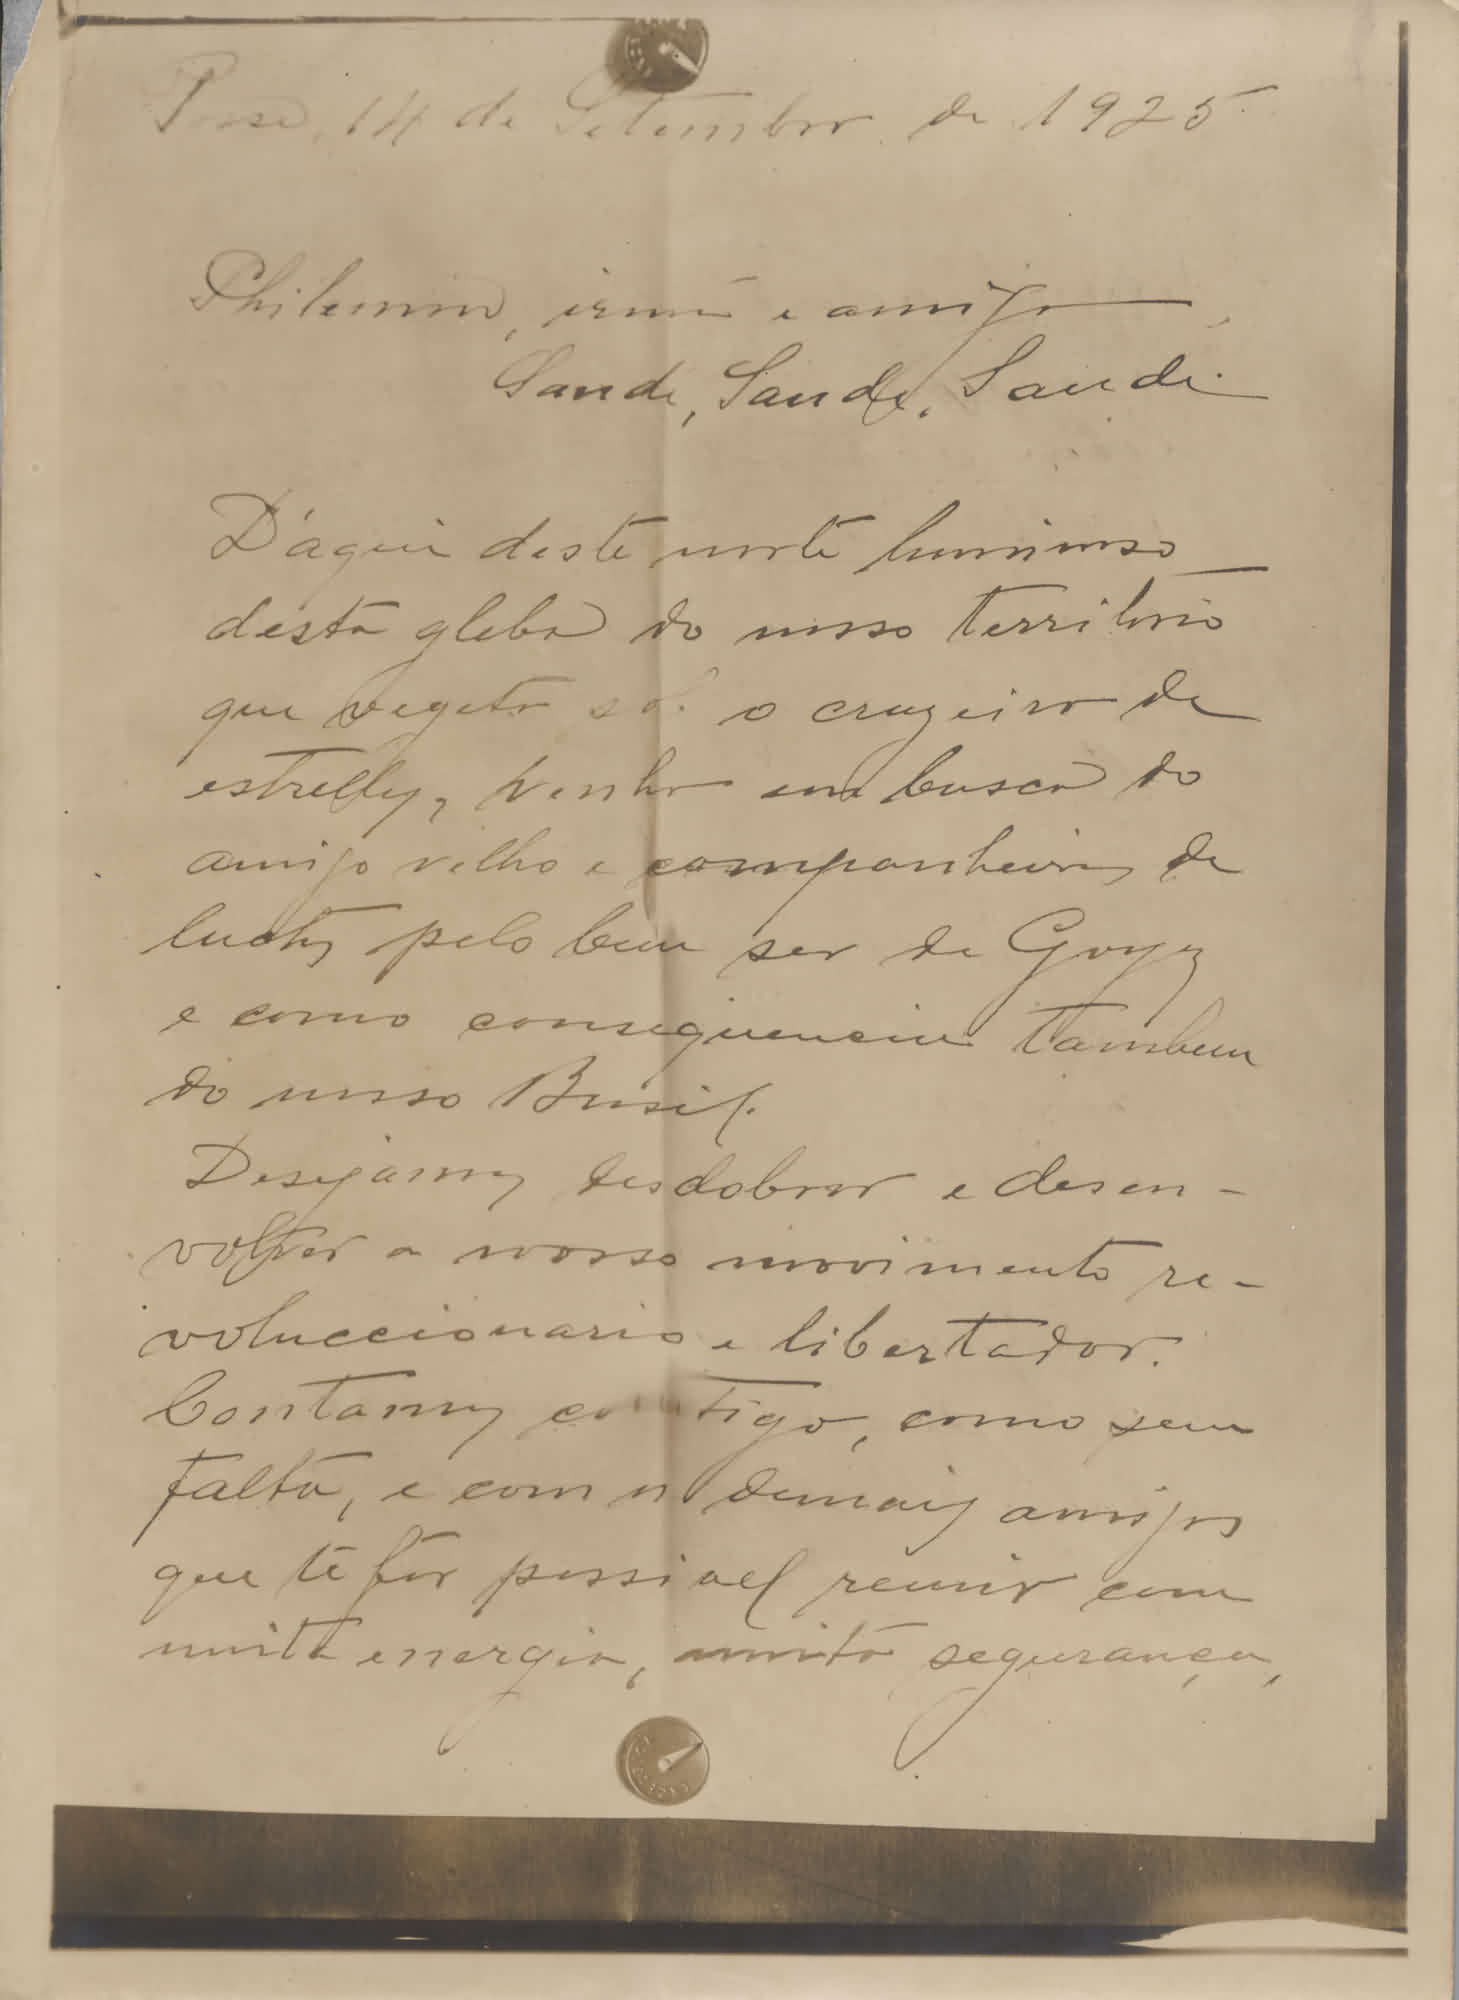 Posse, 14 de Setembro de 1925.
Philemon, irmão e amigo,
Saude, Saude, Saude.
D'aqui deste norte luminoso
desta gleba do nosso territorio
que vegeta só o cruzeiro de
estrellas, venho em busca do
amigo velho e companheiro de
luctas pelo bem ser de Goyaz
e como consequencia tambem
do nosso Brasil.
Desejamos desdobrar e desen-
volver o nosso movimento re-
voluccionario e libertador.
Contamos comtigo, como sem
falta, e com os demais amigos
que te fôr possivel reunir com
muita energia, muita segurança,